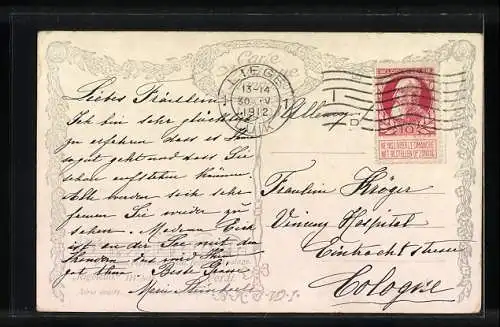 Carte Postale
LIEGE
13-14
30 IV
1912
LUIK
1
10
NE PAS LIVRER LE DIMANCHE
NIET BESTELLEN OP ZONDAG
Liebes Fräulein,
Ich bin sehr glücklich
zu erfahren dass es Ihnen
so gut geht und dass Sie
schon aufstehen können.
Alle würden sich sehr
freuen Sie wieder zu
sehen. Madame
ist an der See mit den
Kindern das wird Ihnen
gut thun. Beste Grüsse
Allemagne
Fräulein Kröger
Vincenz Hospital
Eintrachtstrasse
Cologne